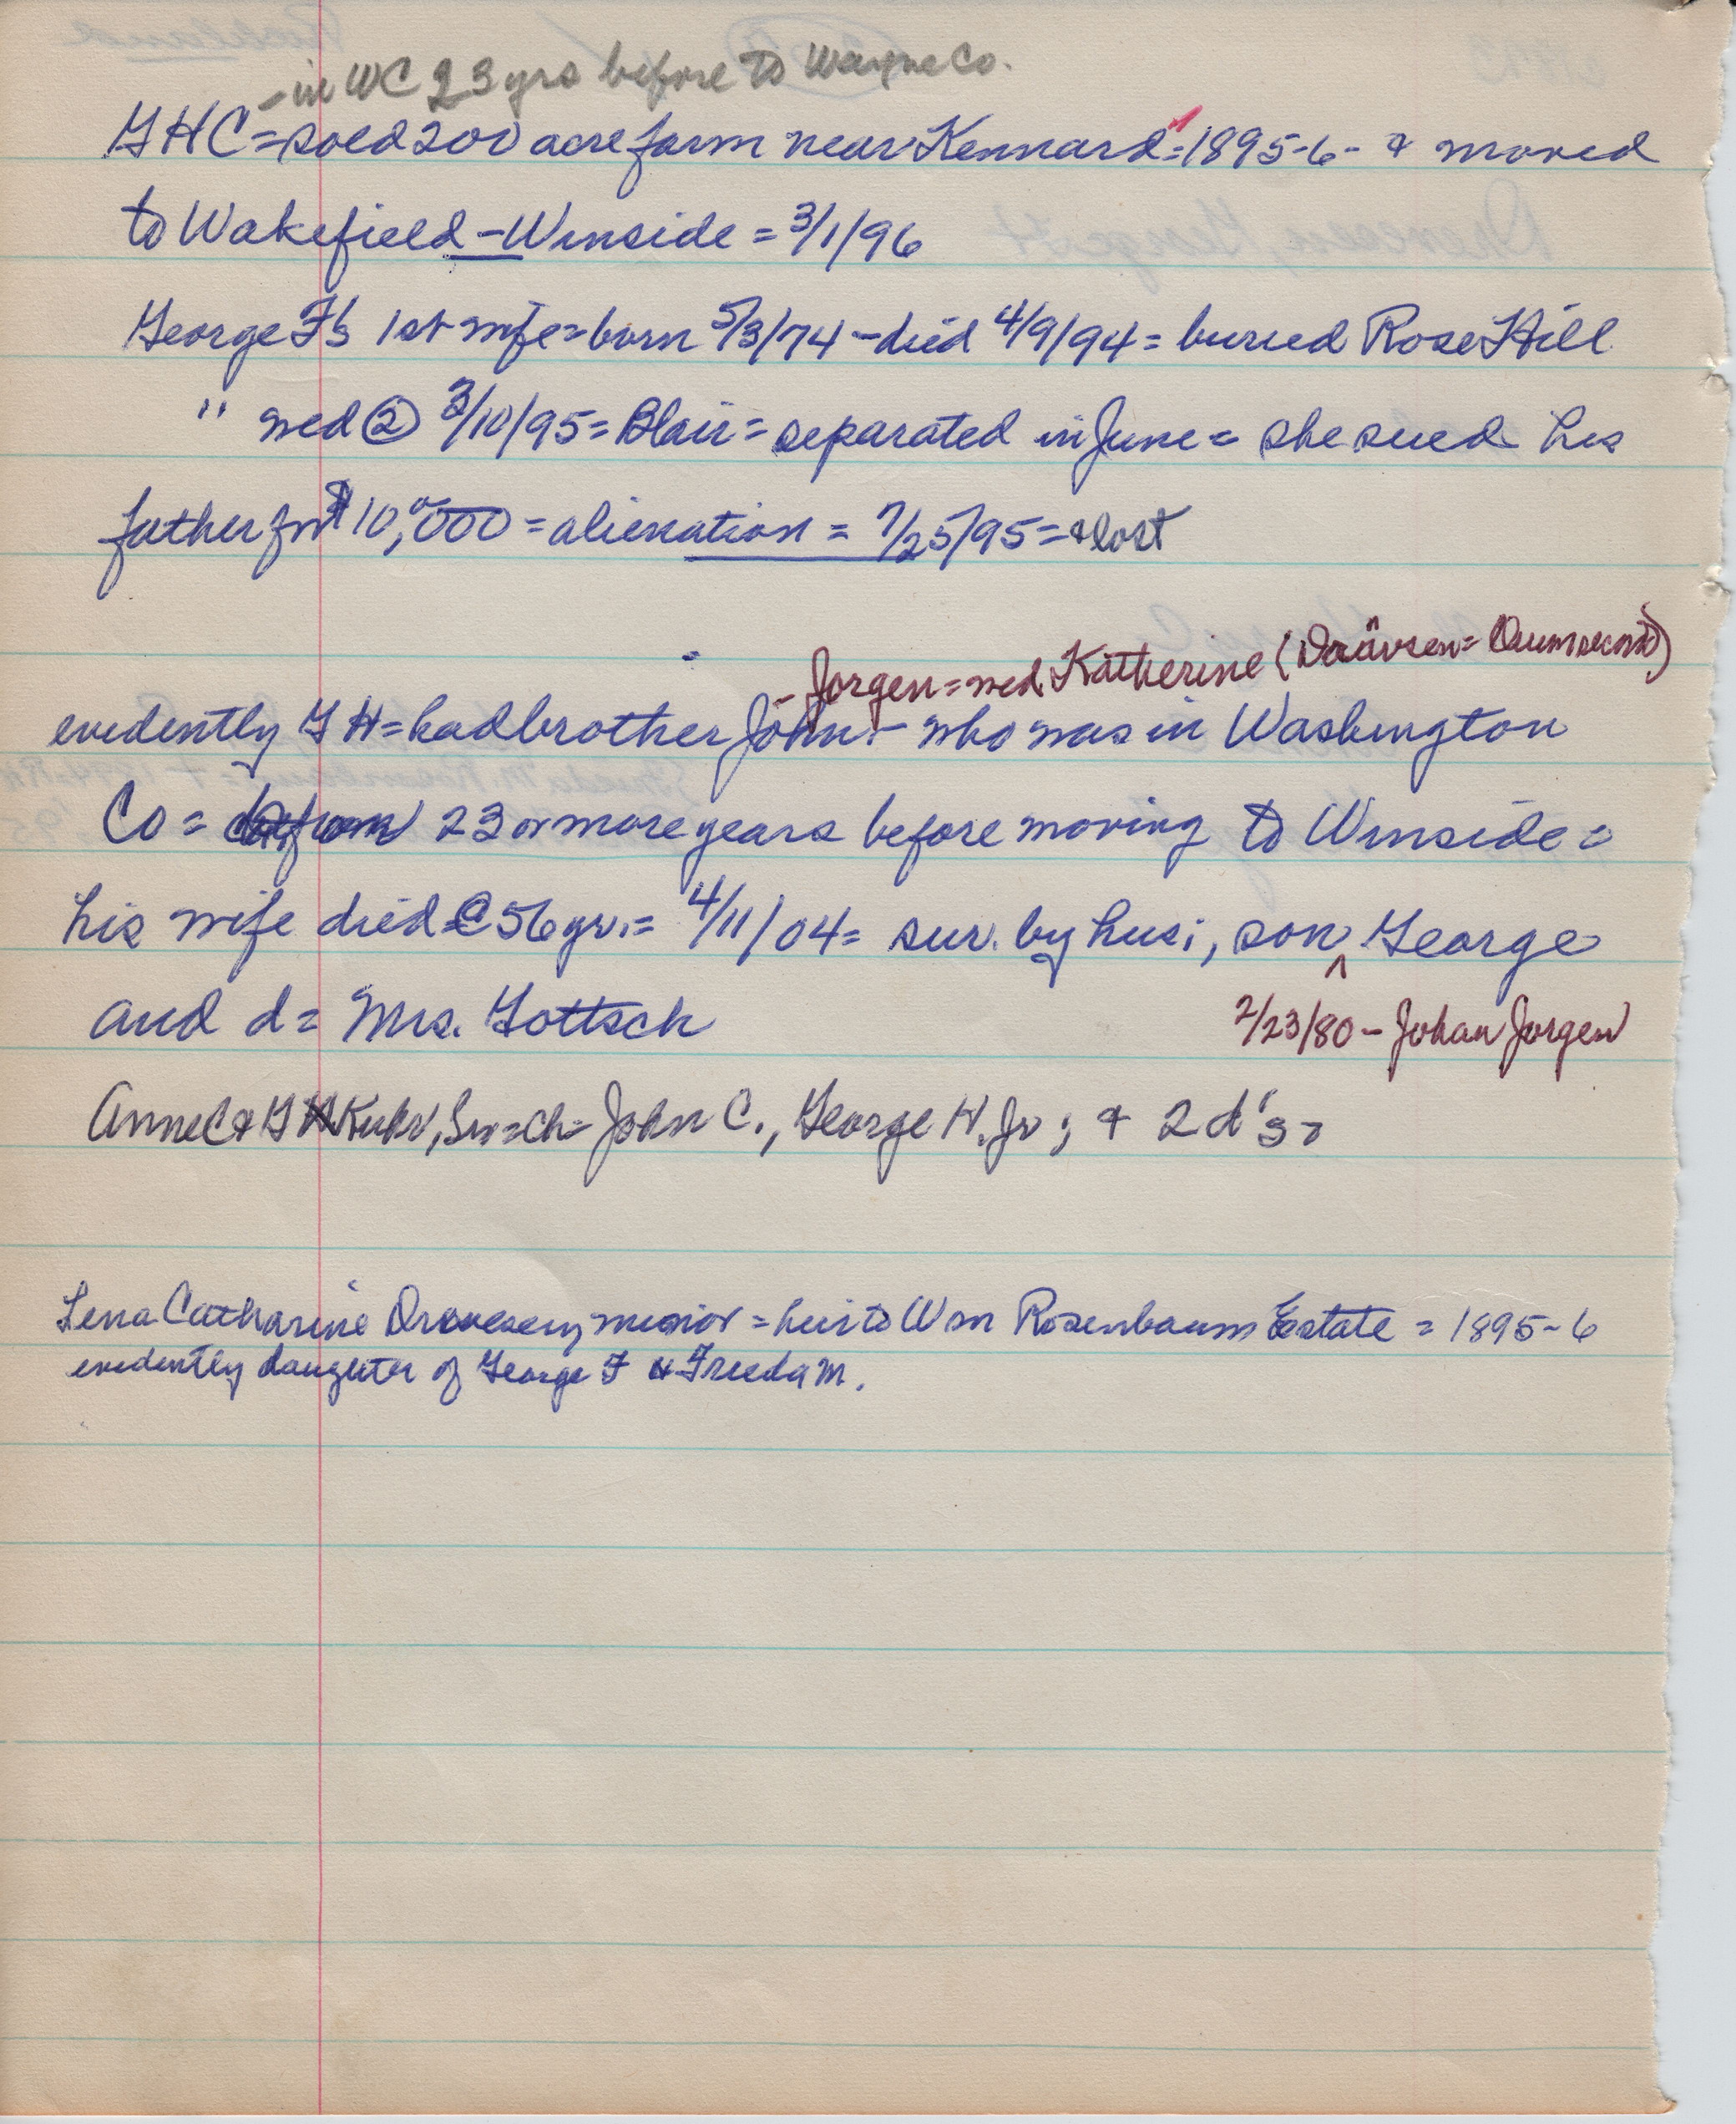 - in WC 23 yrs before to Wayne Co.
GHC = sold 200 acre farm near Kennard = 1895-6 - & moved
to Wakefield - Winside = 3/1/96
George F's 1st wife = born 5/3/74 - died 4/9/94 = buried Rose Hill
" wed ② 3/10/95 = Blair = separated in June = she sued his
father for $10,000 = alienation = 7/25/95 = & lost
- Jorgen = wed Katherine
evidently GH = had brother John - who was in Washington
Co = 23 or more years before moving to Winside =
his wife died @ 56 yr. = 4/11/04 = sur. by hus; son ^ George
and d = Mrs. Gottsch
2/23/80 - Johan Jorgen
Anne C & G Kuhr, Sr = ch = John C., George H. Jr; & 2 d's =
Lena Catharine minor = heir to Wm Rosenbaum Estate = 1895-6
evidently daughter of George F & Freeda M.